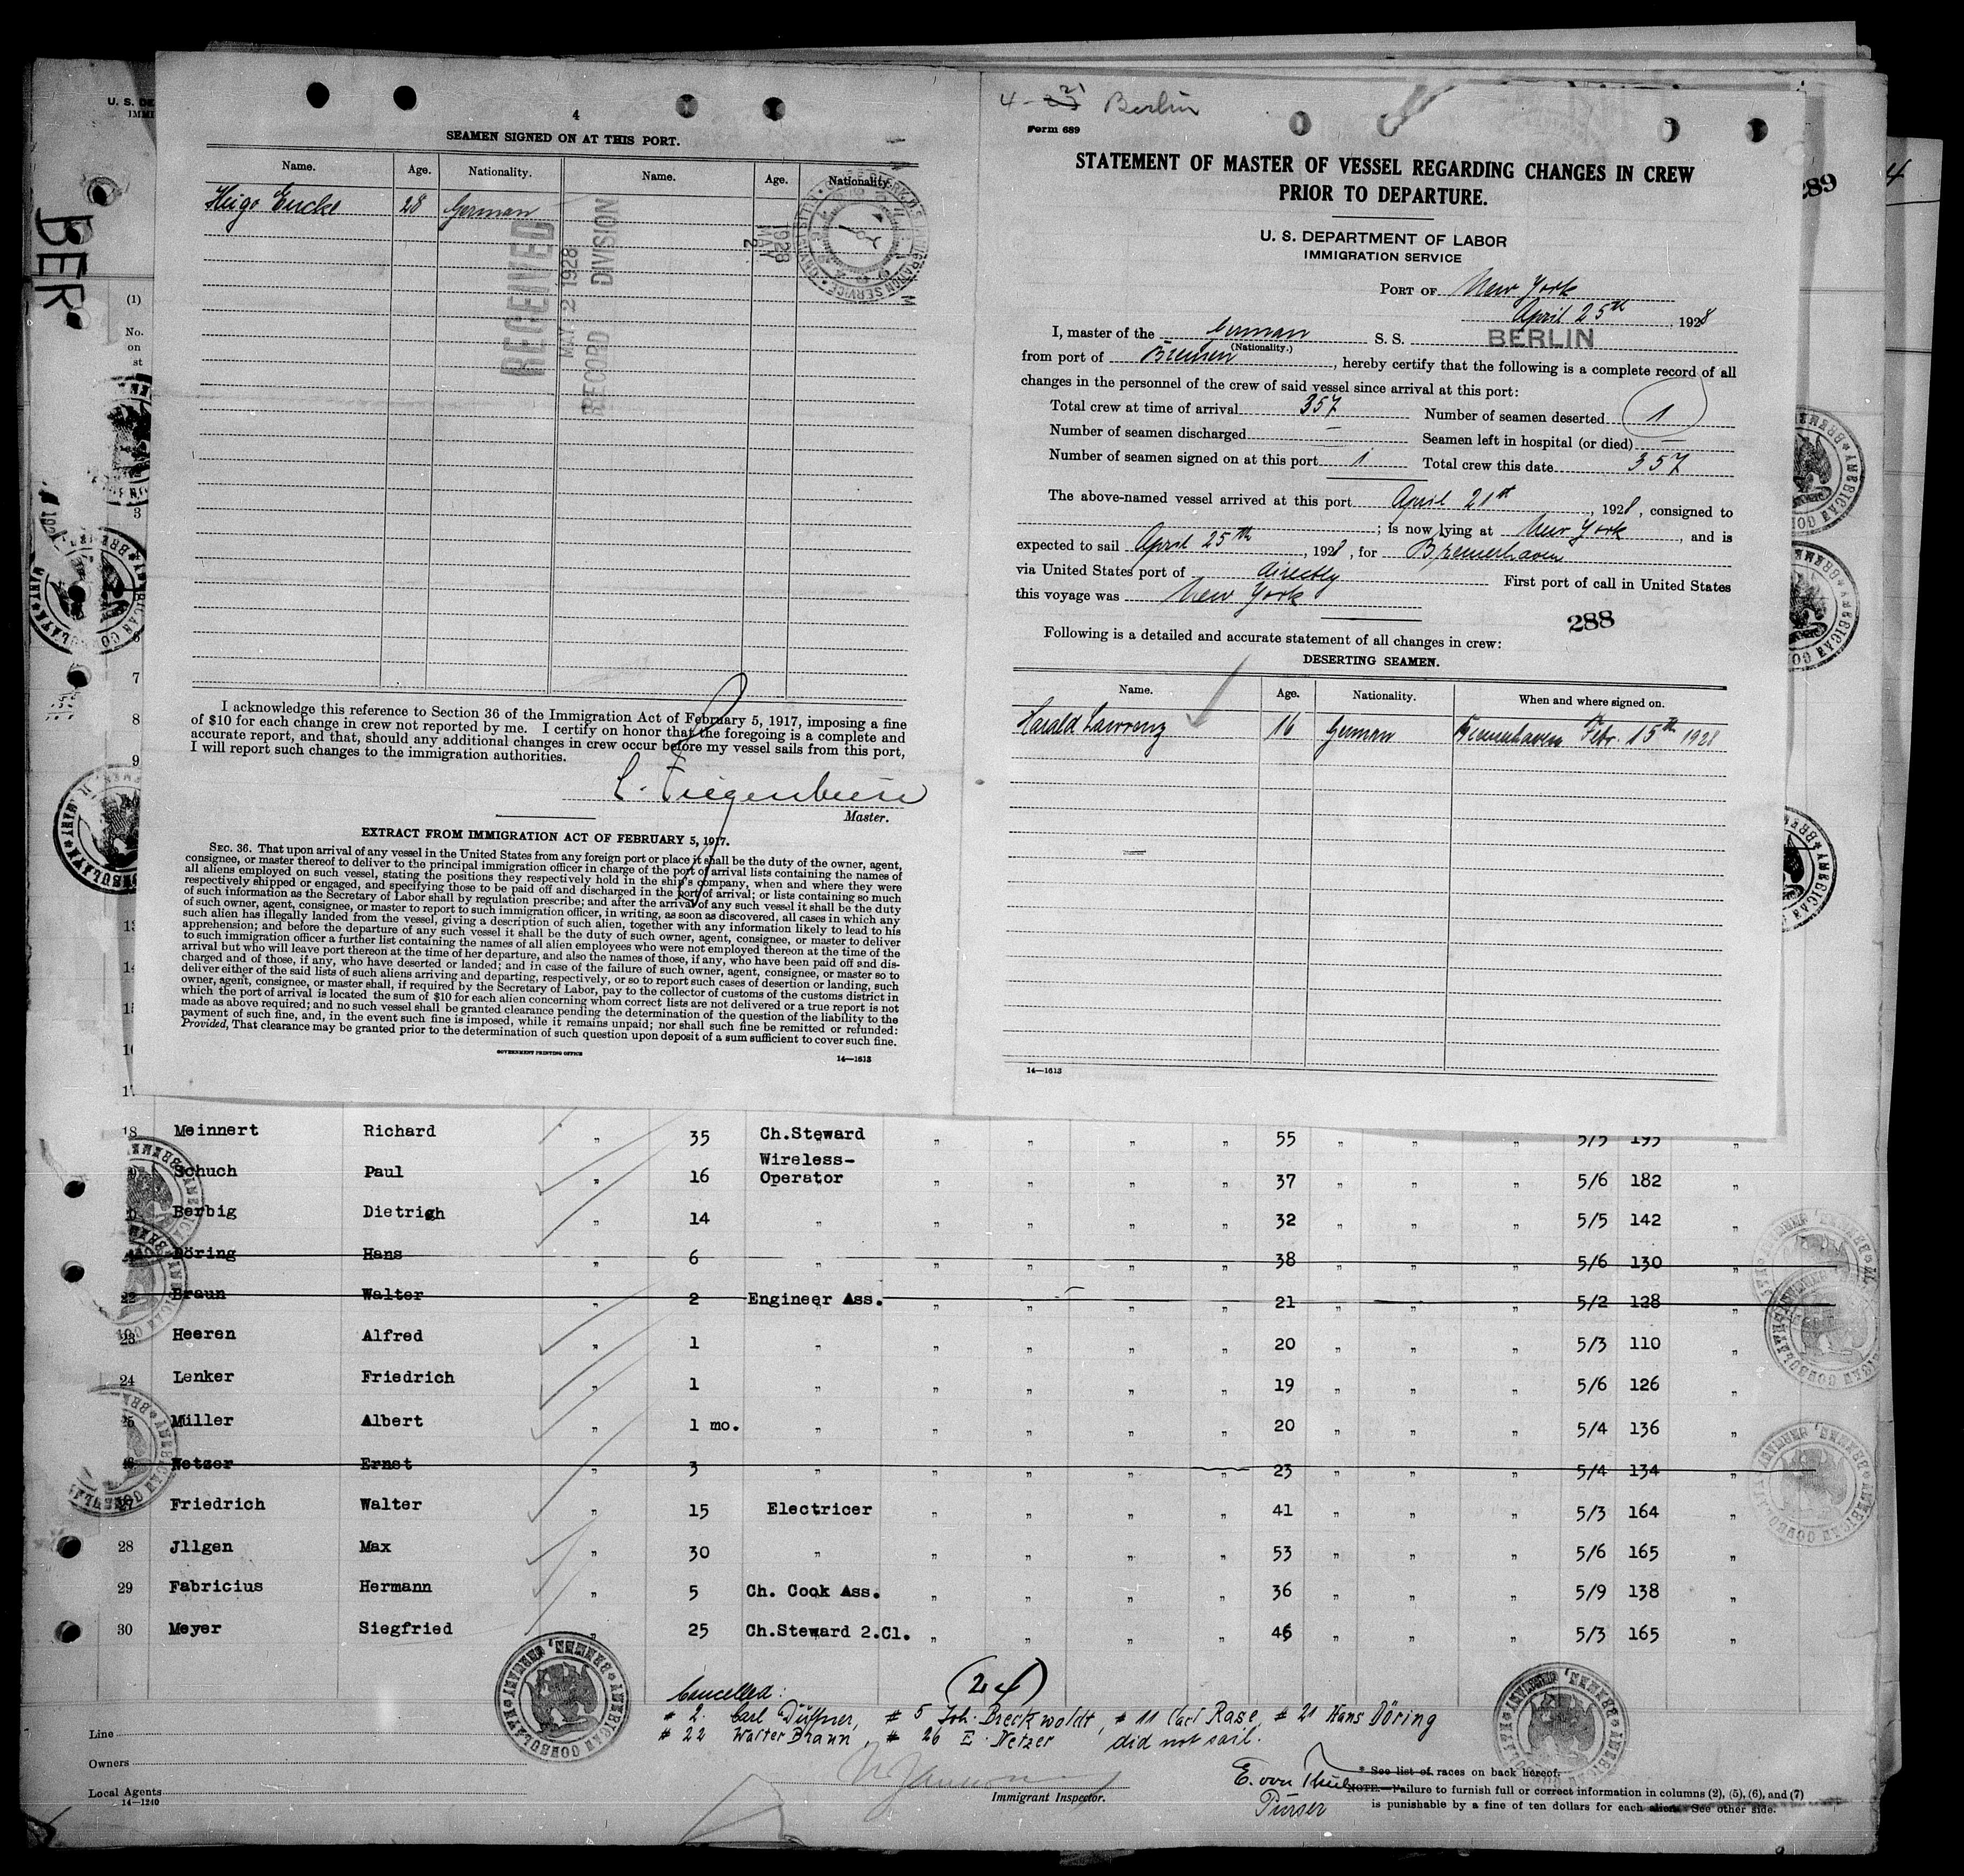 4
SEAMEN SIGNED ON AT THIS PORT.
Name. Age. Nationality. Name. Age. Nationality.
Hugo Eucke 28 German
RECEIVED
MAY 2 1928
RECORD DIVISION
1928
MAY
2
I acknowledge this reference to Section 36 of the Immigration Act of February 5, 1917, imposing a fine
of $10 for each change in crew not reported by me. I certify on honor that the foregoing is a complete and
accurate report, and that, should any additional changes in crew occur before my vessel sails from this port,
I will report such changes to the immigration authorities.
Master.
EXTRACT FROM IMMIGRATION ACT OF FEBRUARY 5, 1917.
SEC. 36. That upon arrival of any vessel in the United States from any foreign port or place it shall be the duty of the owner, agent,
consignee, or master thereof to deliver to the principal immigration officer in charge of the port of arrival lists containing the names of
all aliens employed on such vessel, stating the positions they respectively hold in the ship's company, when and where they were
respectively shipped or engaged, and specifying those to be paid off and discharged in the port of arrival; or lists containing so much
of such information as the Secretary of Labor shall by regulation prescribe; and after the arrival of any such vessel it shall be the duty
of such owner, agent, consignee, or master to report to such immigration officer, in writing, as soon as discovered, all cases in which any
such alien has illegally landed from the vessel, giving a description of such alien, together with any information likely to lead to his
apprehension; and before the departure of any such vessel it shall be the duty of such owner, agent, consignee, or master to deliver
to such immigration officer a further list containing the names of all alien employees who were not employed thereon at the time of the
arrival but who will leave port thereon at the time of her departure, and also the names of those, if any, who have been paid off and dis-
charged and of those, if any, who have deserted or landed; and in case of the failure of such owner, agent, consignee, or master so to
deliver either of the said lists of such aliens arriving and departing, respectively, or so to report such cases of desertion or landing, such
owner, agent, consignee, or master shall, if required by the Secretary of Labor, pay to the collector of customs of the customs district in
which the port of arrival is located the sum of $10 for each alien concerning whom correct lists are not delivered or a true report is not
made as above required; and no such vessel shall be granted clearance pending the determination of the question of the liability to the
payment of such fine, and, in the event such fine is imposed, while it remains unpaid; nor shall such fine be remitted or refunded:
Provided, That clearance may be granted prior to the determination of such question upon deposit of a sum sufficient to cover such fine.
GOVERNMENT PRINTING OFFICE
14—1613
4 - Berlin
Form 689
STATEMENT OF MASTER OF VESSEL REGARDING CHANGES IN CREW
PRIOR TO DEPARTURE.
U. S. DEPARTMENT OF LABOR
IMMIGRATION SERVICE
PORT OF New York
April 25th 1928
I, master of the German S. S. BERLIN
(Nationality.)
from port of Bremen, hereby certify that the following is a complete record of all
changes in the personnel of the crew of said vessel since arrival at this port:
Total crew at time of arrival 357 Number of seamen deserted 1
Number of seamen discharged — Seamen left in hospital (or died) —
Number of seamen signed on at this port 1 Total crew this date 357
The above-named vessel arrived at this port April 21st, 1928, consigned to
; is now lying at New York, and is
expected to sail April 25th, 1928, for Bremerhaven
via United States port of directly First port of call in United States
this voyage was New York
288
Following is a detailed and accurate statement of all changes in crew:
DESERTING SEAMEN.
Name. Age. Nationality. When and where signed on.
Harald Lawrenz 16 German Bremerhaven Febr. 15th 1928
14—1613
289
4
BER
U. S. DE
IMMI
(1)
No.
on
st
3
7
8
9
18 Meinnert Richard " 35 Ch.Steward " " " " 55 " " " 5/5 195 "
Schuch Paul " 16 Wireless-
Operator " " " " 37 " " " 5/6 182 "
Berbig Dietrich " 14 " " " " " 32 " " " 5/5 142 "
Döring Hans " 6 " " " " " 38 " " " 5/6 130 "
22 Braun Walter " 2 Engineer Ass. " " " " 21 " " " 5/2 128 "
23 Heeren Alfred " 1 " " " " " 20 " " " 5/3 110 "
24 Lenker Friedrich " 1 " " " " " 19 " " " 5/6 126 "
25 Müller Albert " 1 mo. " " " " " 20 " " " 5/4 136 "
Netzer Ernst " 3 " " " " " 23 " " " 5/4 134 "
27 Friedrich Walter " 15 Electricer " " " " 41 " " " 5/3 164 "
28 Jllgen Max " 30 " " " " " 53 " " " 5/6 165 "
29 Fabricius Hermann " 5 Ch. Cook Ass. " " " " 36 " " " 5/9 138 "
30 Meyer Siegfried " 25 Ch.Steward 2.Cl. " " " " 46 " " " 5/3 165 "
AMERICAN CONSULATE BREMEN, GERMANY
(24)
Cancelled:
# 2. Carl # 5 Joh. Breckwoldt, # 11 Carl Rase, # 21 Hans Döring
# 22 Walter Braun, # 26 E. Netzer did not sail.
Line
Owners
Local Agents
14—1240
Immigrant Inspector.
E. von
Purser
* See list of races on back hereof.
NOTE.—Failure to furnish full or correct information in columns (2), (5), (6), and (7)
is punishable by a fine of ten dollars for each alien. See other side.